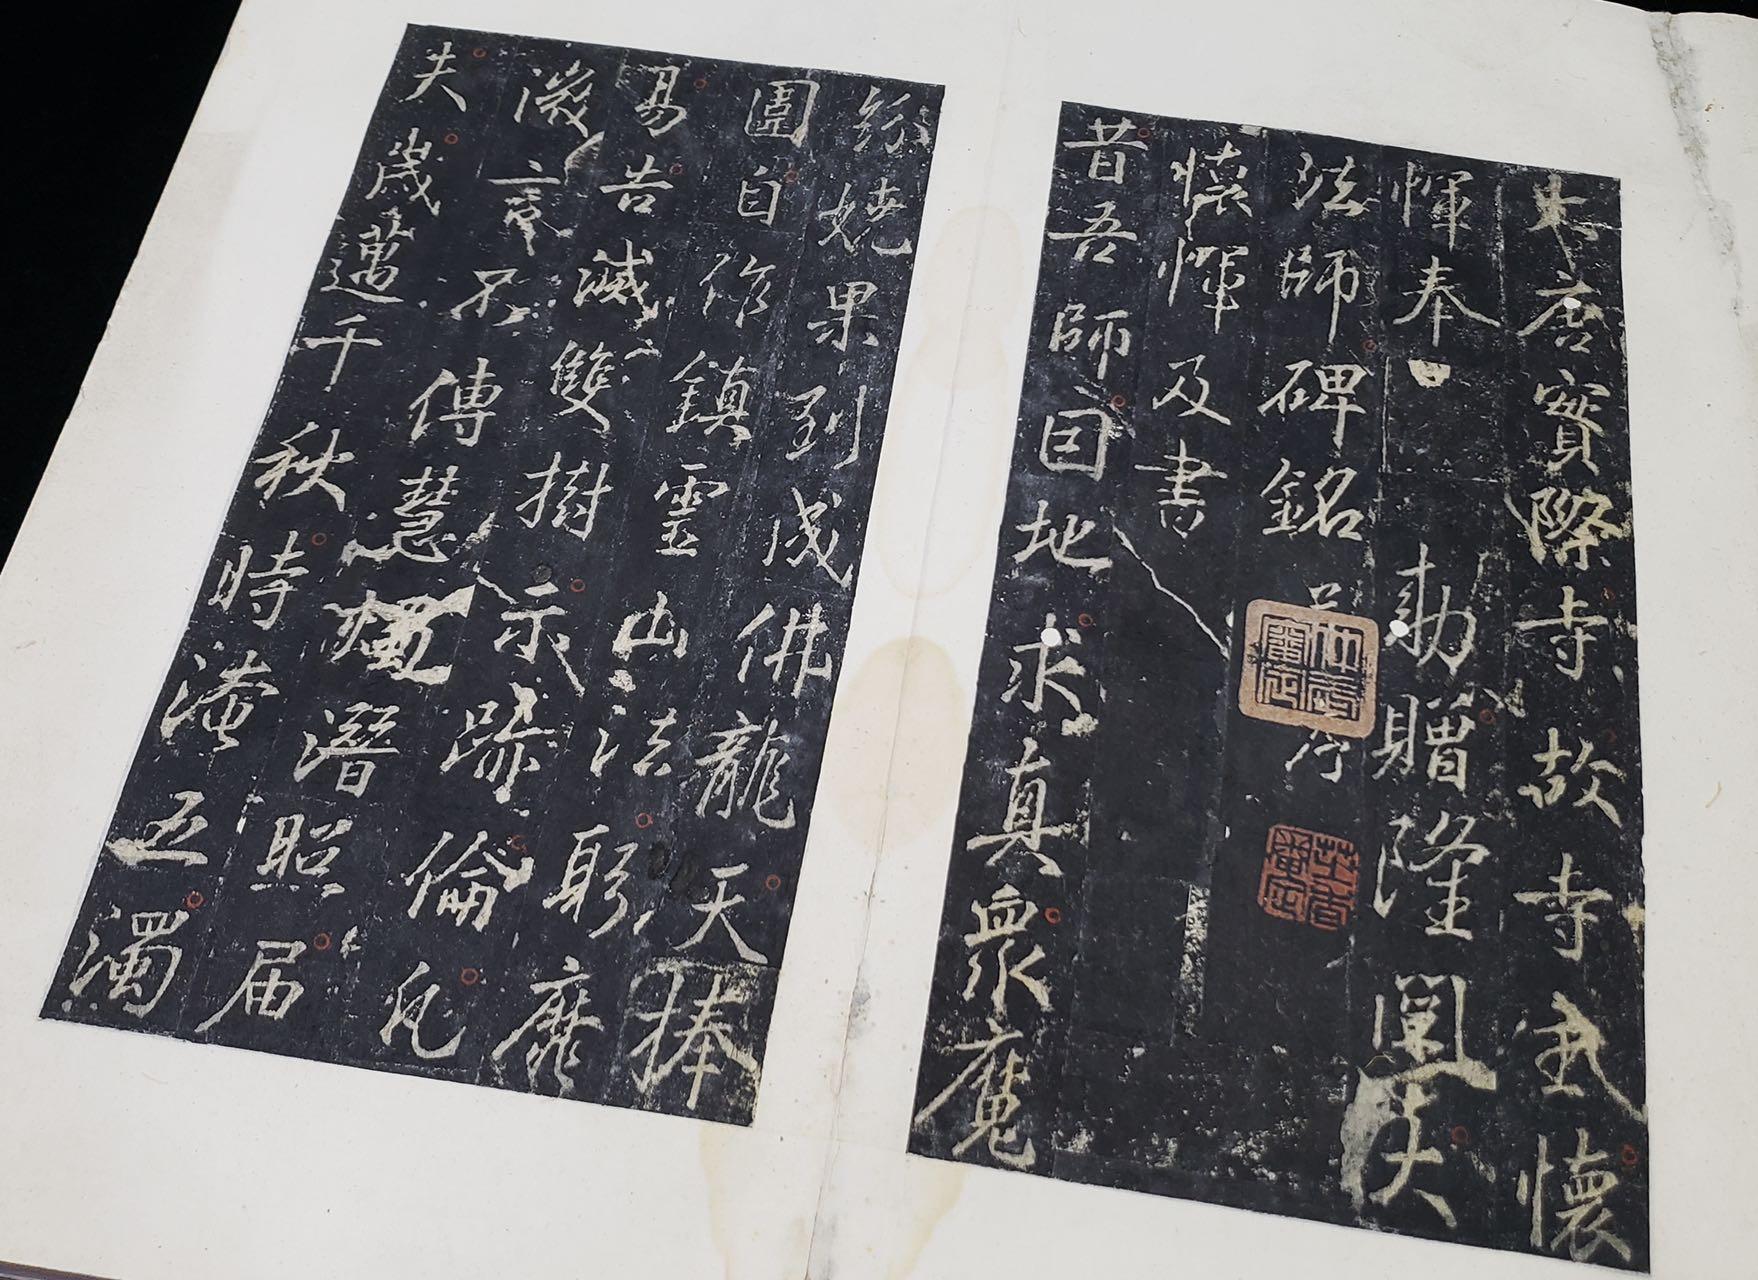 大唐實際寺故寺主懷
惲奉
勅贈隆闡大
法師碑銘并序
懷惲及書
昔吾師因地求真衆魔
紛嬈果到成佛龍天捧
圍自作鎮靈山法躬靡
易告滅雙樹示跡倫凡
微言不傳慧炬潛照届
夫歲邁千秋時淹五濁